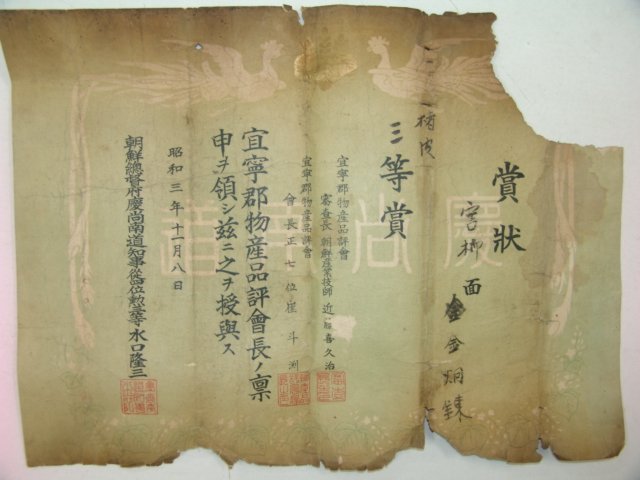 賞狀
面
金炯錬
一 楮皮
三等賞
宜寧郡物産品評會
審査長 朝鮮産業技師 近藤喜久治
宜寧郡物産品評會
會長正七位崔斗洲
宜寧郡物産品評會長ノ稟
申ヲ領シ茲ニ之ヲ授與ス
昭和三年十一月八日
朝鮮總督府慶尚南道知事從四位勲三等水口隆三